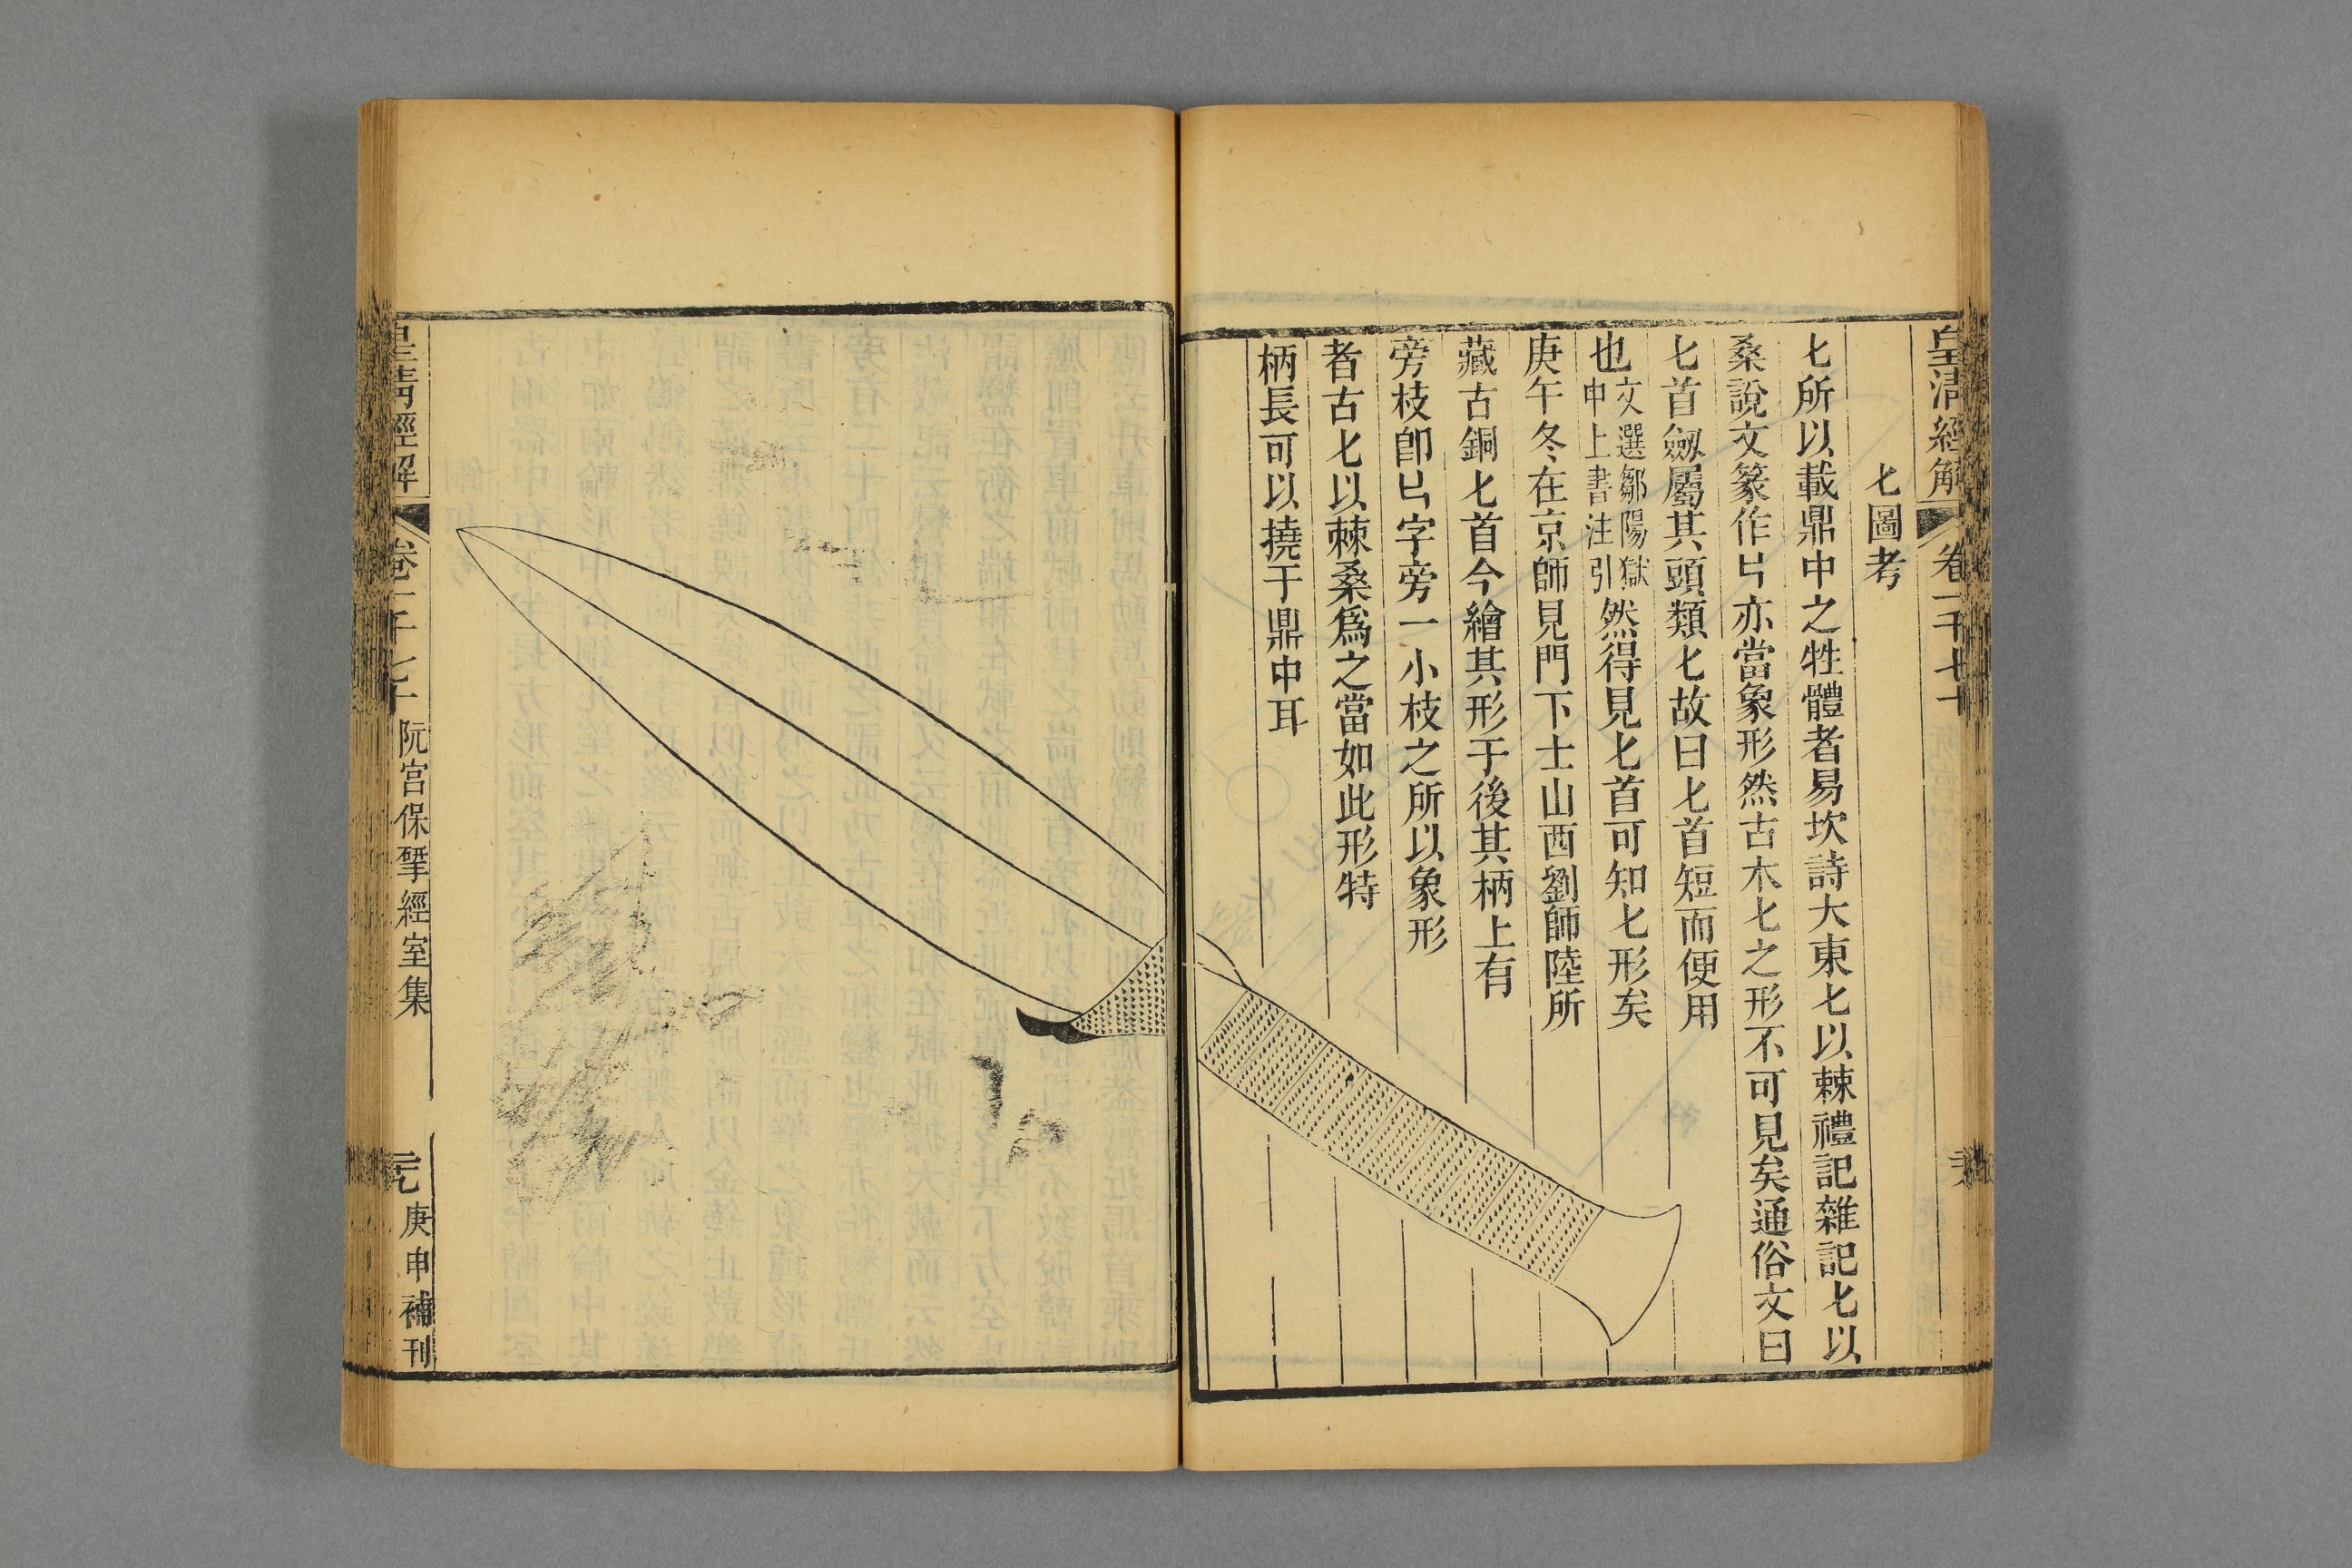 皇清經解 卷一千七十
匕圖考
匕所以載鼎中之牲體者易坎詩大東匕以棘禮記雜記匕以
桑說文篆作𠤎亦當象形然古木匕之形不可見矣通俗文曰
匕首劔屬其頭類匕故曰匕首短而便用
也文選鄒陽獄中上書注引然得見匕首可知匕形矣
庚午冬在京師見門下士山西劉師陸所
藏古銅匕首今繪其形于後其柄上有
旁枝卽𠤎字旁一小枝之所以象形
者古匕以棘桑爲之當如此形特
柄長可以撓于鼎中耳
皇清經解 卷一千七十 阮宮保揅經室集
庚申補刊